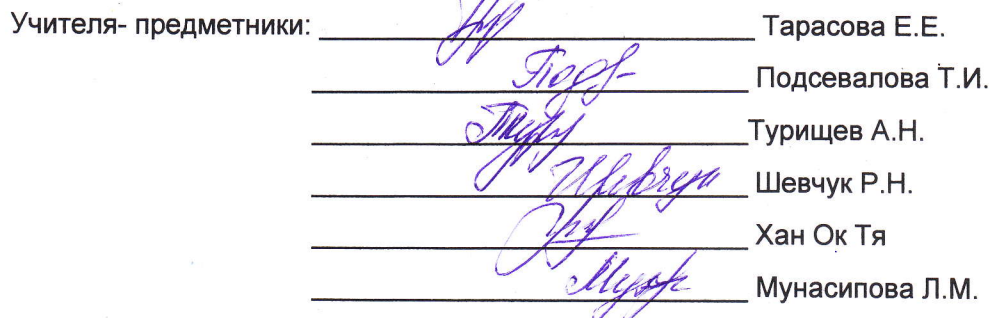 Учителя- предметники: Тарасова Е.Е.
Подсевалова Т.И.
Турищев А.Н.
Шевчук Р.Н.
Хан Ок Тя
Мунасипова Л.М.